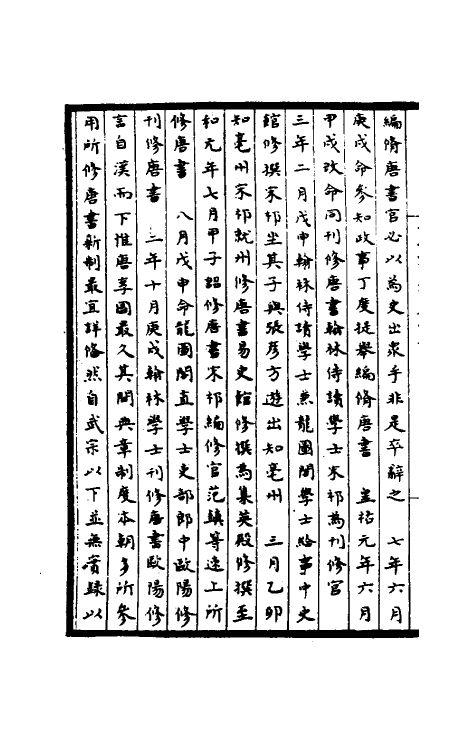 編脩唐書官必以為史出衆手非是卒辭之　七年六月
庚戌命參知政事丁度提舉編脩唐書　皇祐元年六月
甲戌改命同刊修唐書翰林侍讀學士宋祁為刊修官
三年二月戊申翰林侍讀學士兼龍圖閣學士給事中史
館修撰宋祁坐其子與張彦方遊出知亳州　三月乙卯
知亳州宋祁就州修唐書易史館修撰為集英殿修撰至
和元年七月甲子詔修唐書宋祁編修官范鎮等速上所
修唐書　八月戊申命龍圖閣直學士吏部郎中歐陽修
刊修唐書　三年十月庚戌翰林學士刊修唐書歐陽修
言自漢而下惟唐享國最久其間典章制度本朝多所參
用所修唐書新制最宜詳悉然自武宗以下並無實錄以